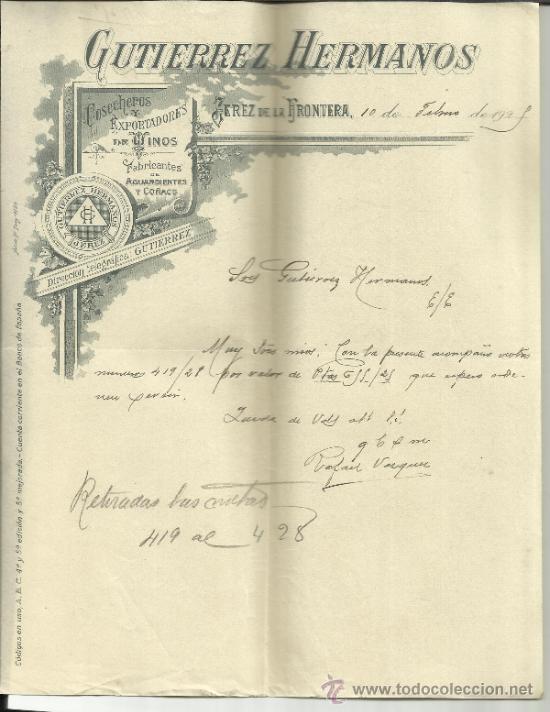 GUTIERREZ HERMANOS
Cosecheros
Y
EXPORTADORES
DE VINOS
Fabricantes
DE
AGUARDIENTES
Y COÑACS
JEREZ DE LA FRONTERA, 10 de Febrero de 192
GUTIERREZ HERMANOS
JEREZ
Dirección telegráfica GUTIERREZ
Sres Gutiérrez Hermanos.
E/E
Muy Sres mios: Con la presente acompaño
numeros 419/28 por valor de Ptas que espero
Queda de Vds att S.S.
q b s m
Rafael Vasquez
Retiradas las
419 al 428
Códigos en uso, A. B. C. 4ª y 5ª edición y 5ª mejorada.- Cuenta corriente en el Banco de España
www.todocoleccion.net